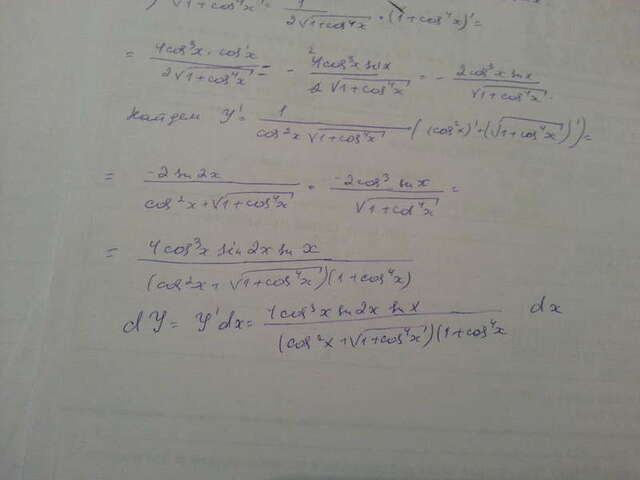 ) √(1+cos⁴x)' = 1/(2√(1+cos⁴x)) · (1+cos⁴x)' =
= (4cos³x · cos'x)/(2√(1+cos⁴x)) = - (4cos³x sin x)/(2√(1+cos⁴x)) = - (2cos³x sin x)/√(1+cos⁴x).
Найдем y' = 1/(cos²x √(1+cos⁴x)) ((cos²x)' + (√(1+cos⁴x))') =
= (-2 sin 2x)/(cos²x + √(1+cos⁴x)) · (-2cos³ sin x)/√(1+cos⁴x) =
= (4cos³x sin 2x sin x)/((cos²x + √(1+cos⁴x))(1+cos⁴x))
dy = y'dx = (4cos³x sin 2x sin x)/((cos²x + √(1+cos⁴x))(1+cos⁴x) dx